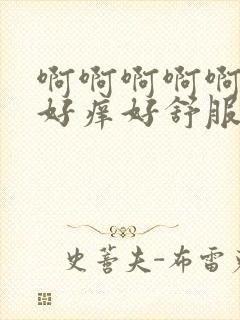 啊啊啊啊啊
好痒好舒服
史蒂夫-布雷